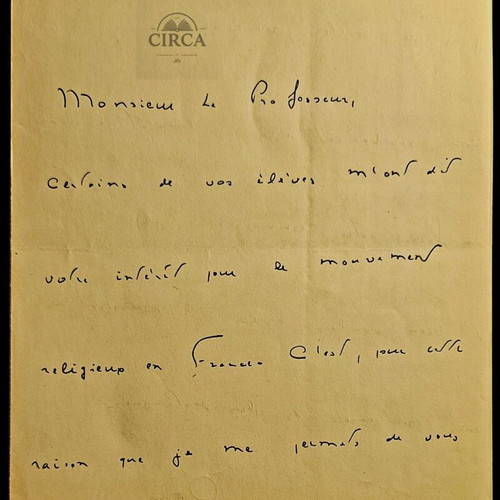 CIRCA
Monsieur le Professeur,
Certains de vos élèves m'ont dit
votre intérêt pour le mouvement
religieux en France. C'est, pour cette
raison que je me permets de vous